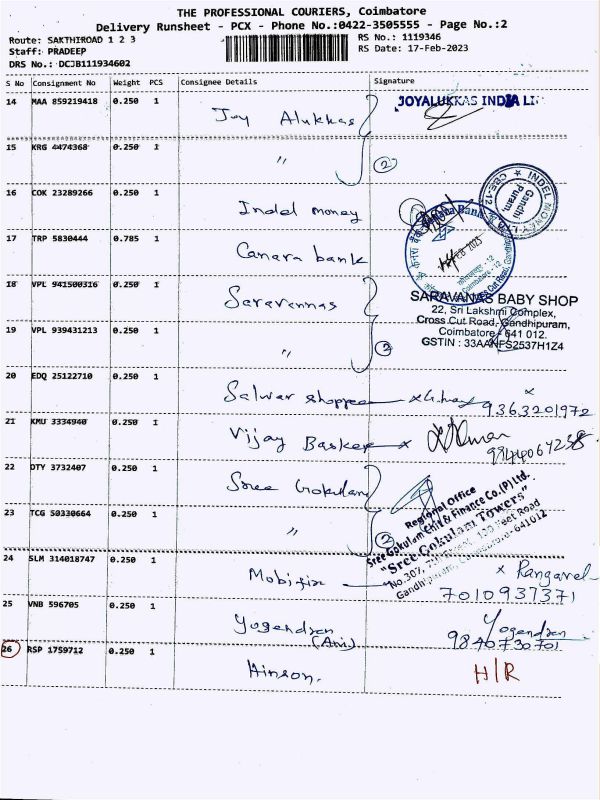 THE PROFESSIONAL COURIERS, Coimbatore
Delivery Runsheet - PCX - Phone No.:0422-3505555 - Page No.:2
Route: SAKTHIROAD 1 2 3
Staff: PRADEEP
DRS No.: DCJB111934602
RS No.: 1119346
RS Date: 17-Feb-2023
S No Consignment No Weight PCS Consignee Details Signature
14 MAA 859219418 0.250 1 Joy Alukkas JOYALUKKAS INDIA LI
15 KRG 4474368 0.250 1 〃 2
INDEL MONEY LTD
CBE-12
Gandhi
Puram,
16 COK 23289266 0.250 1 Indel money
17 TRP 5830444 0.785 1 Canara bank
FEB 2023
Coimbatore - 12
Cross Cut Road, Gandhipuram
18 VPL 941500316 0.250 1 Saravannas
SARAVANAS BABY SHOP
22, Sri Lakshmi Complex,
Cross Cut Road, Gandhipuram,
Coimbatore - 641 012.
GSTIN : 33AANFS2537H1Z4
19 VPL 939431213 0.250 1 〃 2
20 EDQ 25122710 0.250 1 Salwar shoppee x x
9363201972
21 KMU 3334940 0.250 1 Vijay Basker x
22 DTY 3732407 0.250 1 Sree Gokulam
Regional Office
Sree Gokulam Chit & Finance Co.(P)Ltd.
"Sree Gokulam Towers"
No.307, 7th Street, 100 Feet Road
Gandhipuram, Coimbatore-641012
23 TCG 50330664 0.250 1 〃 2
24 SLM 314018747 0.250 1 Mobifix x Rangavel
7010937371
25 VNB 596705 0.250 1 Yogendran Yogendran
(Ani) 9840730701
26 RSP 1759712 0.250 1 Hinson. H/R